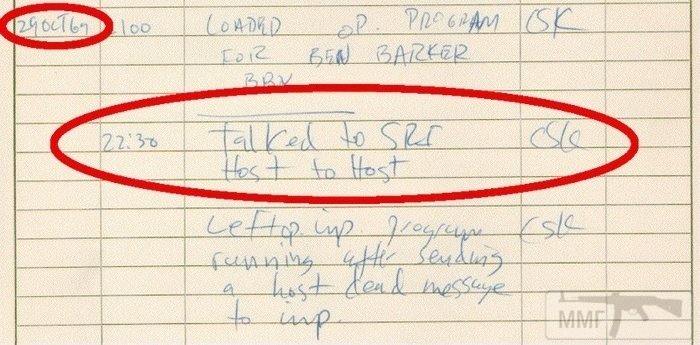 29 OCT 69 2100 LOADED OP. PROGRAM CSK
FOR BEN BARKER
BBN
22:30 Talked to SRI CSK
Host to Host
Left op. imp program CSK
running after sending
a host dead message
to imp.
ММГ